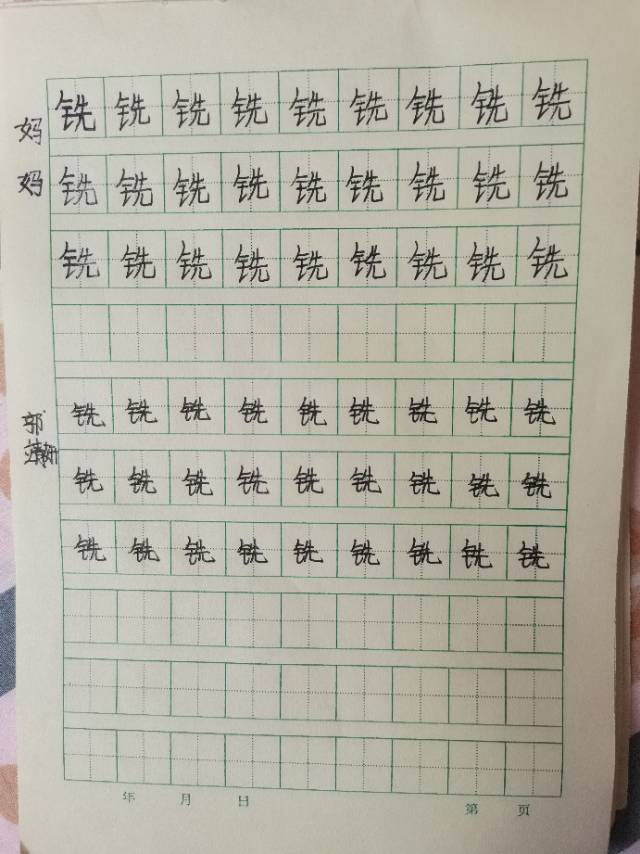 妈
妈
铣铣铣铣铣铣铣铣铣
铣铣铣铣铣铣铣铣铣
铣铣铣铣铣铣铣铣铣
郭
铣铣铣铣铣铣铣铣铣
铣铣铣铣铣铣铣铣铣
铣铣铣铣铣铣铣铣铣
年 月 日 第 页